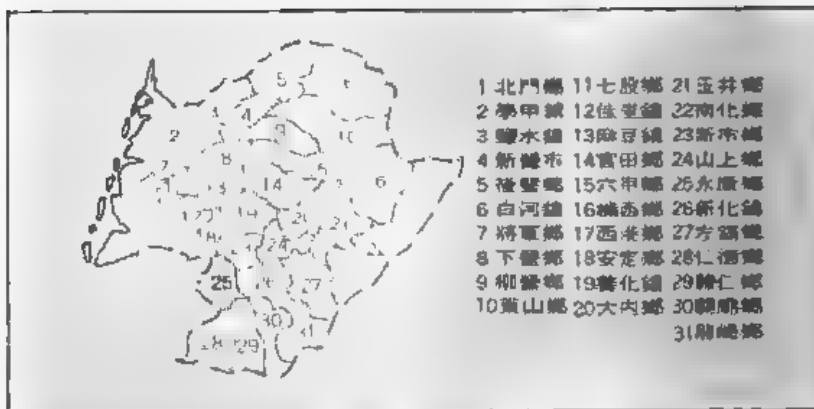 5
4
2
9
10
8
7
6
14
24
25
27
30
31
28
29
1 北門鄉
2 學甲鎮
3 鹽水鎮
4 新營市
5 後壁鄉
6 白河鎮
7 將軍鄉
8 下營鄉
9 柳營鄉
10 東山鄉
11 七股鄉
12 佳里鎮
13 麻豆鎮
14 官田鄉
15 六甲鄉
16 楠西鄉
17 西港鄉
18 安定鄉
19 善化鎮
20 大內鄉
21 玉井鄉
22 南化鄉
23 新市鄉
24 山上鄉
25 永康鄉
26 新化鎮
27 左鎮鄉
28 仁德鄉
29 歸仁鄉
30 關廟鄉
31 龍崎鄉